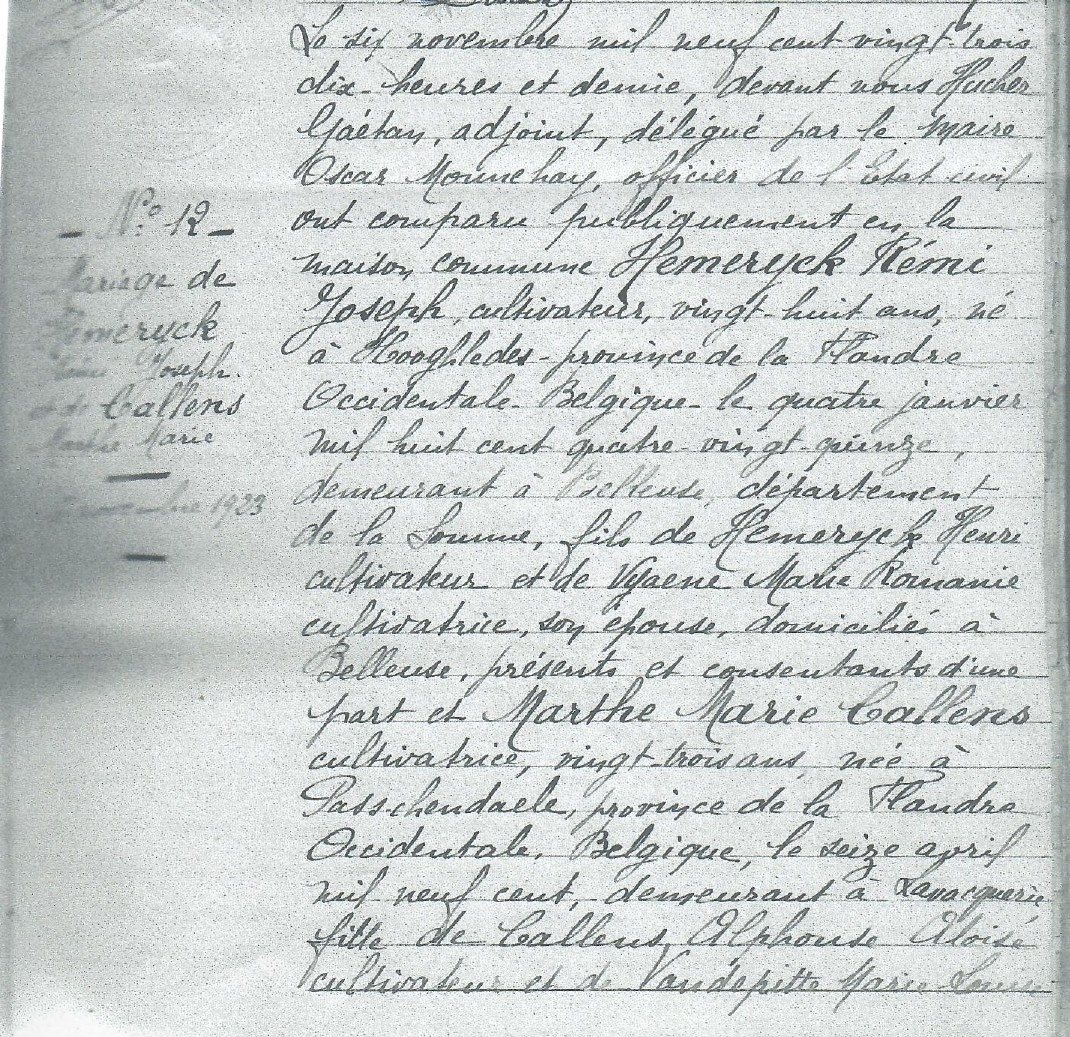 - No 12 -
Mariage de
Hemeryck
Joseph
et de Callens
Marthe Marie
novembre 1923
Le six novembre mil neuf cent vingt-trois
dix-heures et demie, devant nous Hucher
Gaétan, adjoint, délégué par le Maire
Oscar officier de l'Etat civil
ont comparu publiquement en la
maison commune Hemeryck Rémi
Joseph, cultivateur, vingt-huit ans, né
à Hooghledes - province de la Flandre
Occidentale - Belgique - le quatre janvier
mil huit cent quatre-vingt-quinze,
demeurant à Belleuse, département
de la Somme, fils de Hemeryck Henri
cultivateur et de Vyaene Marie Romanie
cultivatrice, son épouse, domiciliés à
Belleuse, présents et consentants d'une
part et Marthe Marie Callens
cultivatrice, vingt-trois ans, née à
Passchendaele, province de la Flandre
Occidentale, Belgique, le seize avril
mil neuf cent, demeurant à Lavacquerie
fille de Callens Alphonse Aloïse
cultivateur et de Vandepitte Marie Louise